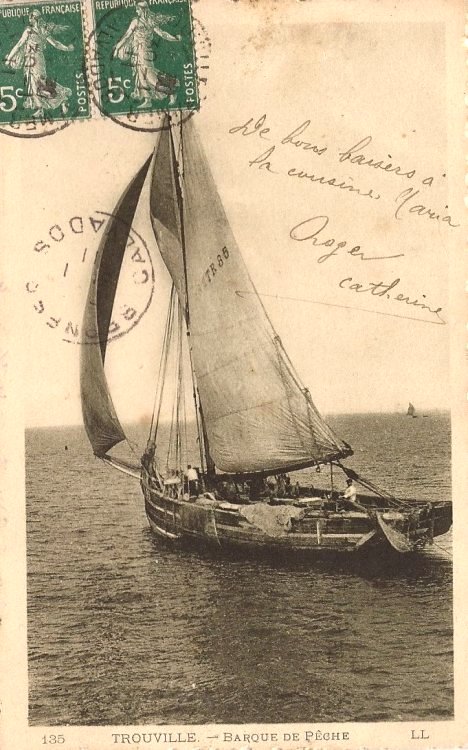 PUBLIQUE FRANÇAISE
REPUBLIQUE FRANÇAISE
5c
5c
De bons baisers à
la cousine Maria
Roger
Catherine
CALVADOS
TR 86
135 TROUVILLE. — BARQUE DE PÊCHE LL